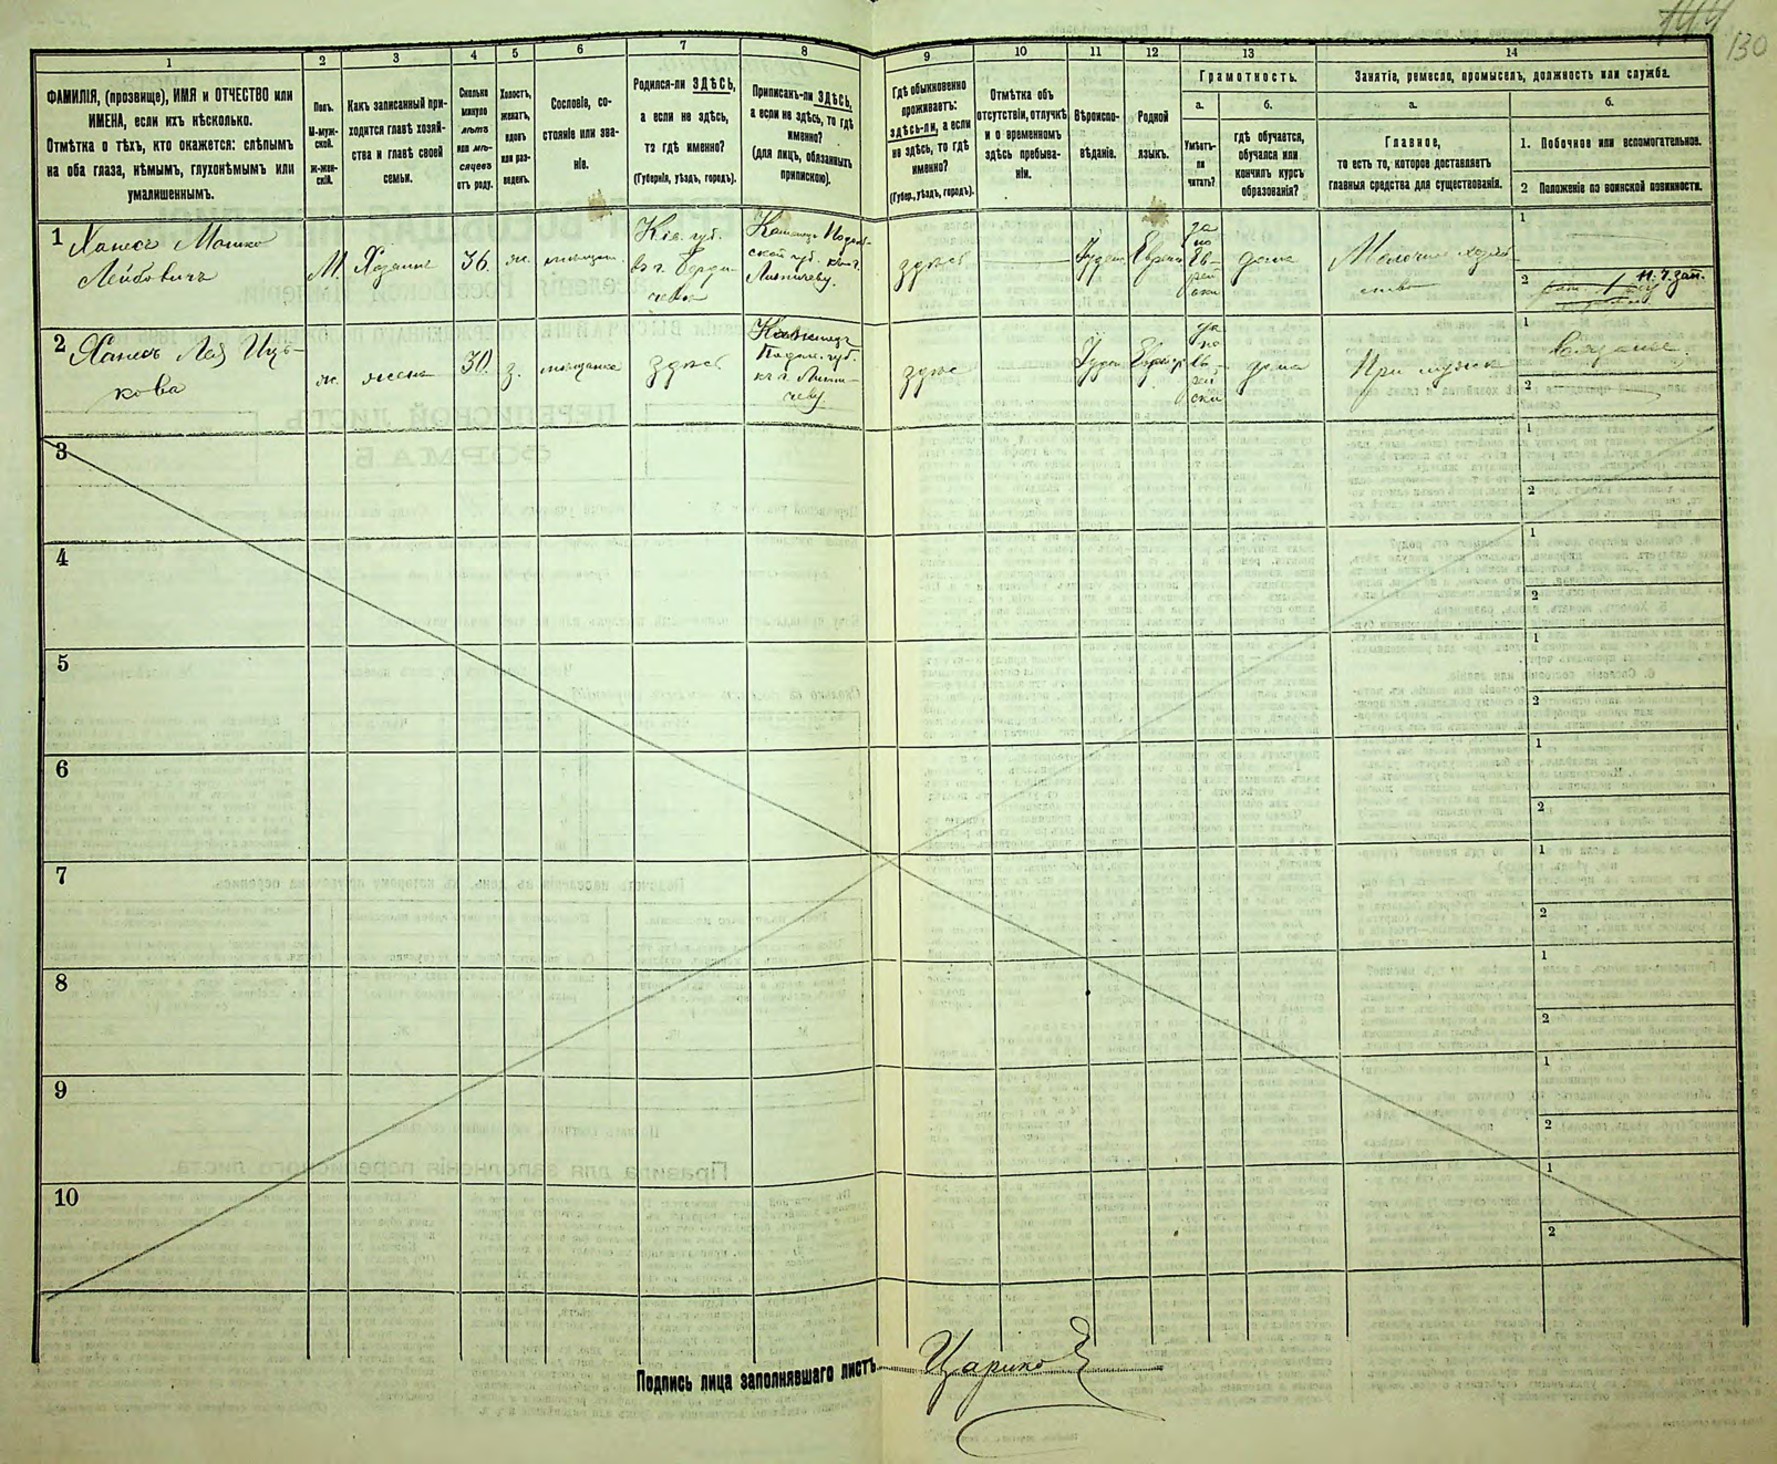 144
130
1
2
3
4
5
6
7
8
9
10
11
12
13
14
ФАМИЛІЯ, (прозвище), ИМЯ и ОТЧЕСТВО или
ИМЕНА, если ихъ нѣсколько.
Отмѣтка о тѣхъ, кто окажется: слѣпымъ
на оба глаза, нѣмымъ, глухонѣмымъ или
умалишеннымъ.
Полъ.
М-муж-
ской.
ж-жен-
скій.
Какъ записанный при-
ходится главѣ хозяй-
ства и главѣ своей
семьи.
Сколько
минуло
лѣтъ
или мѣ-
сяцевъ
отъ роду.
Холостъ,
женатъ,
вдовъ
или раз-
веденъ.
Сословіе, со-
стояніе или зва-
ніе.
Родился-ли ЗДѢСЬ,
а если не здѣсь,
то гдѣ именно?
(Губернія, уѣздъ, городъ).
Приписанъ-ли ЗДѢСЬ,
а если не здѣсь, то гдѣ
именно?
(для лицъ, обязанныхъ
припискою).
Гдѣ обыкновенно
проживаетъ:
здѣсь-ли, а если
не здѣсь, то гдѣ
именно?
(Губер., уѣздъ, городъ).
Отмѣтка объ
отсутствіи, отлучкѣ
и о временномъ
здѣсь пребыва-
ніи.
Вѣроиспо-
вѣданіе.
Родной
языкъ.
Грамотность.
а.
б.
Умѣетъ-
ли
читать?
гдѣ обучается,
обучался или
кончилъ курсъ
образованія?
Занятіе, ремесло, промыселъ, должность или служба.
а.
б.
Главное,
то есть то, которое доставляетъ
главныя средства для существованія.
1. Побочное или вспомогательное.
2 Положеніе по воинской повинности.
1
Ханесъ Мошко
Лейбовичъ
М.
Хозяинъ
36.
ж.
мѣщан.
Кіе. губ.
въ г. Берди-
чевѣ
Каменец Подоль-
ской губ. къ г.
Литичеву.
здѣсь
Іудей
Еврей
да
по
Ев-
рей
ски
дома
Молочное хозяй-
ство
1
2
н. ч. зап.
2
Ханесъ Лея Иць-
кова
ж.
жена
30.
з.
мѣщанка
здѣсь
Каменец
Подол. губ.
къ г. Лити-
чеву
здѣсь
Іудей
Еврей
да
по
Ев-
рей
ски
дома
При мужѣ
1
Вязанье.
2
3
1
2
4
1
2
5
1
2
6
1
2
7
1
2
8
1
2
9
1
2
10
1
2
Подпись лица заполнявшаго листъ
Цариков